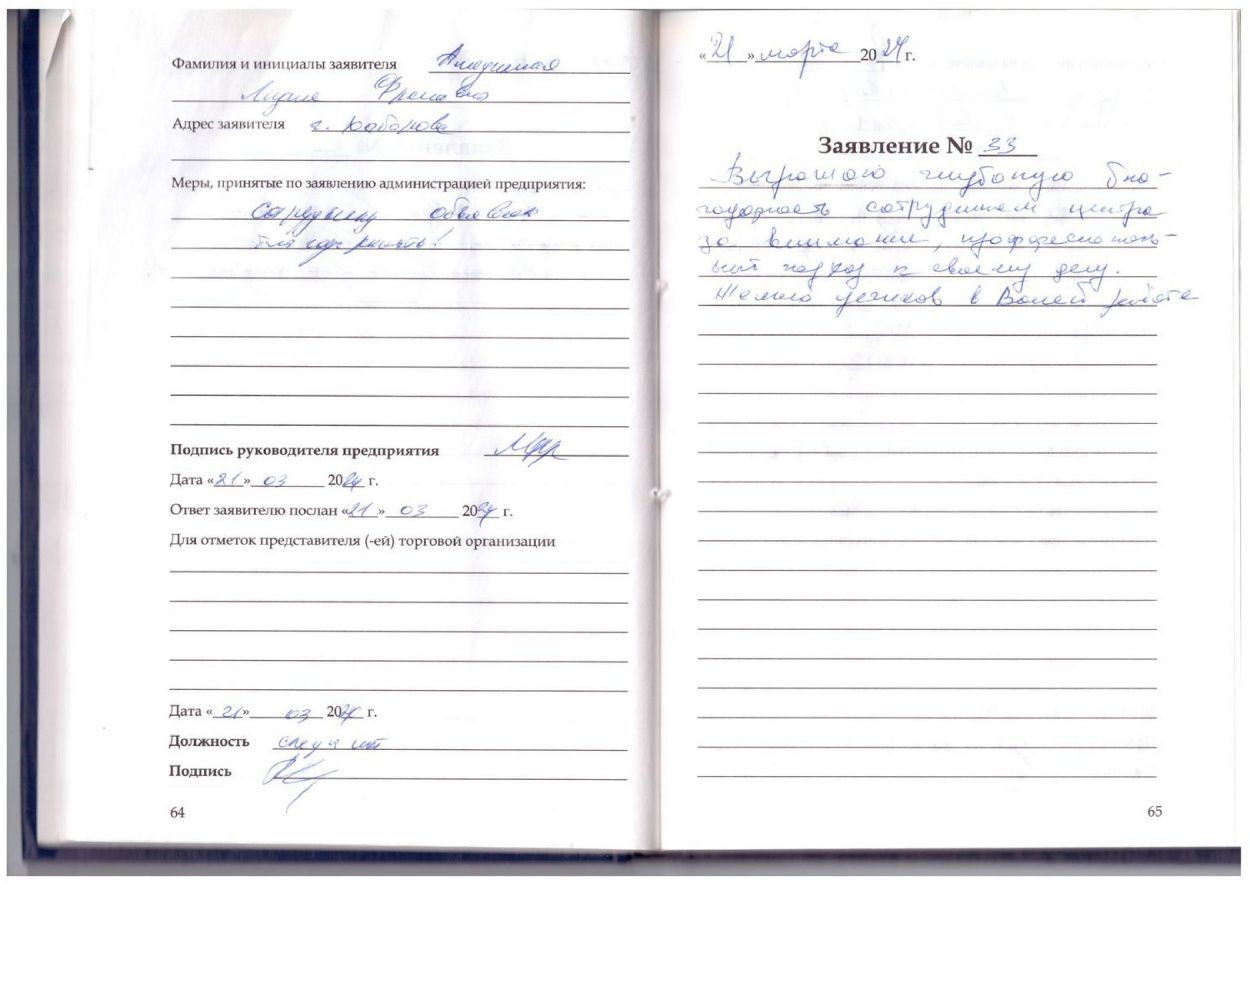 Фамилия и инициалы заявителя
Лидия
Адрес заявителя г. Хабаровск
Меры, принятые по заявлению администрацией предприятия:
сотруднику объявлена
благодарность!
Подпись руководителя предприятия
Дата «21» 03 2024 г.
Ответ заявителю послан «21» 03 2024 г.
Для отметок представителя (-ей) торговой организации
Дата «21» 03 2024 г.
Должность специалист
Подпись
64
«21» марта 2024 г.
Заявление № 33
Выражаю глубокую бла-
годарность сотрудникам центра
за внимание, профессиональ-
ный подход к своему делу.
Желаю успехов в Вашей работе
65